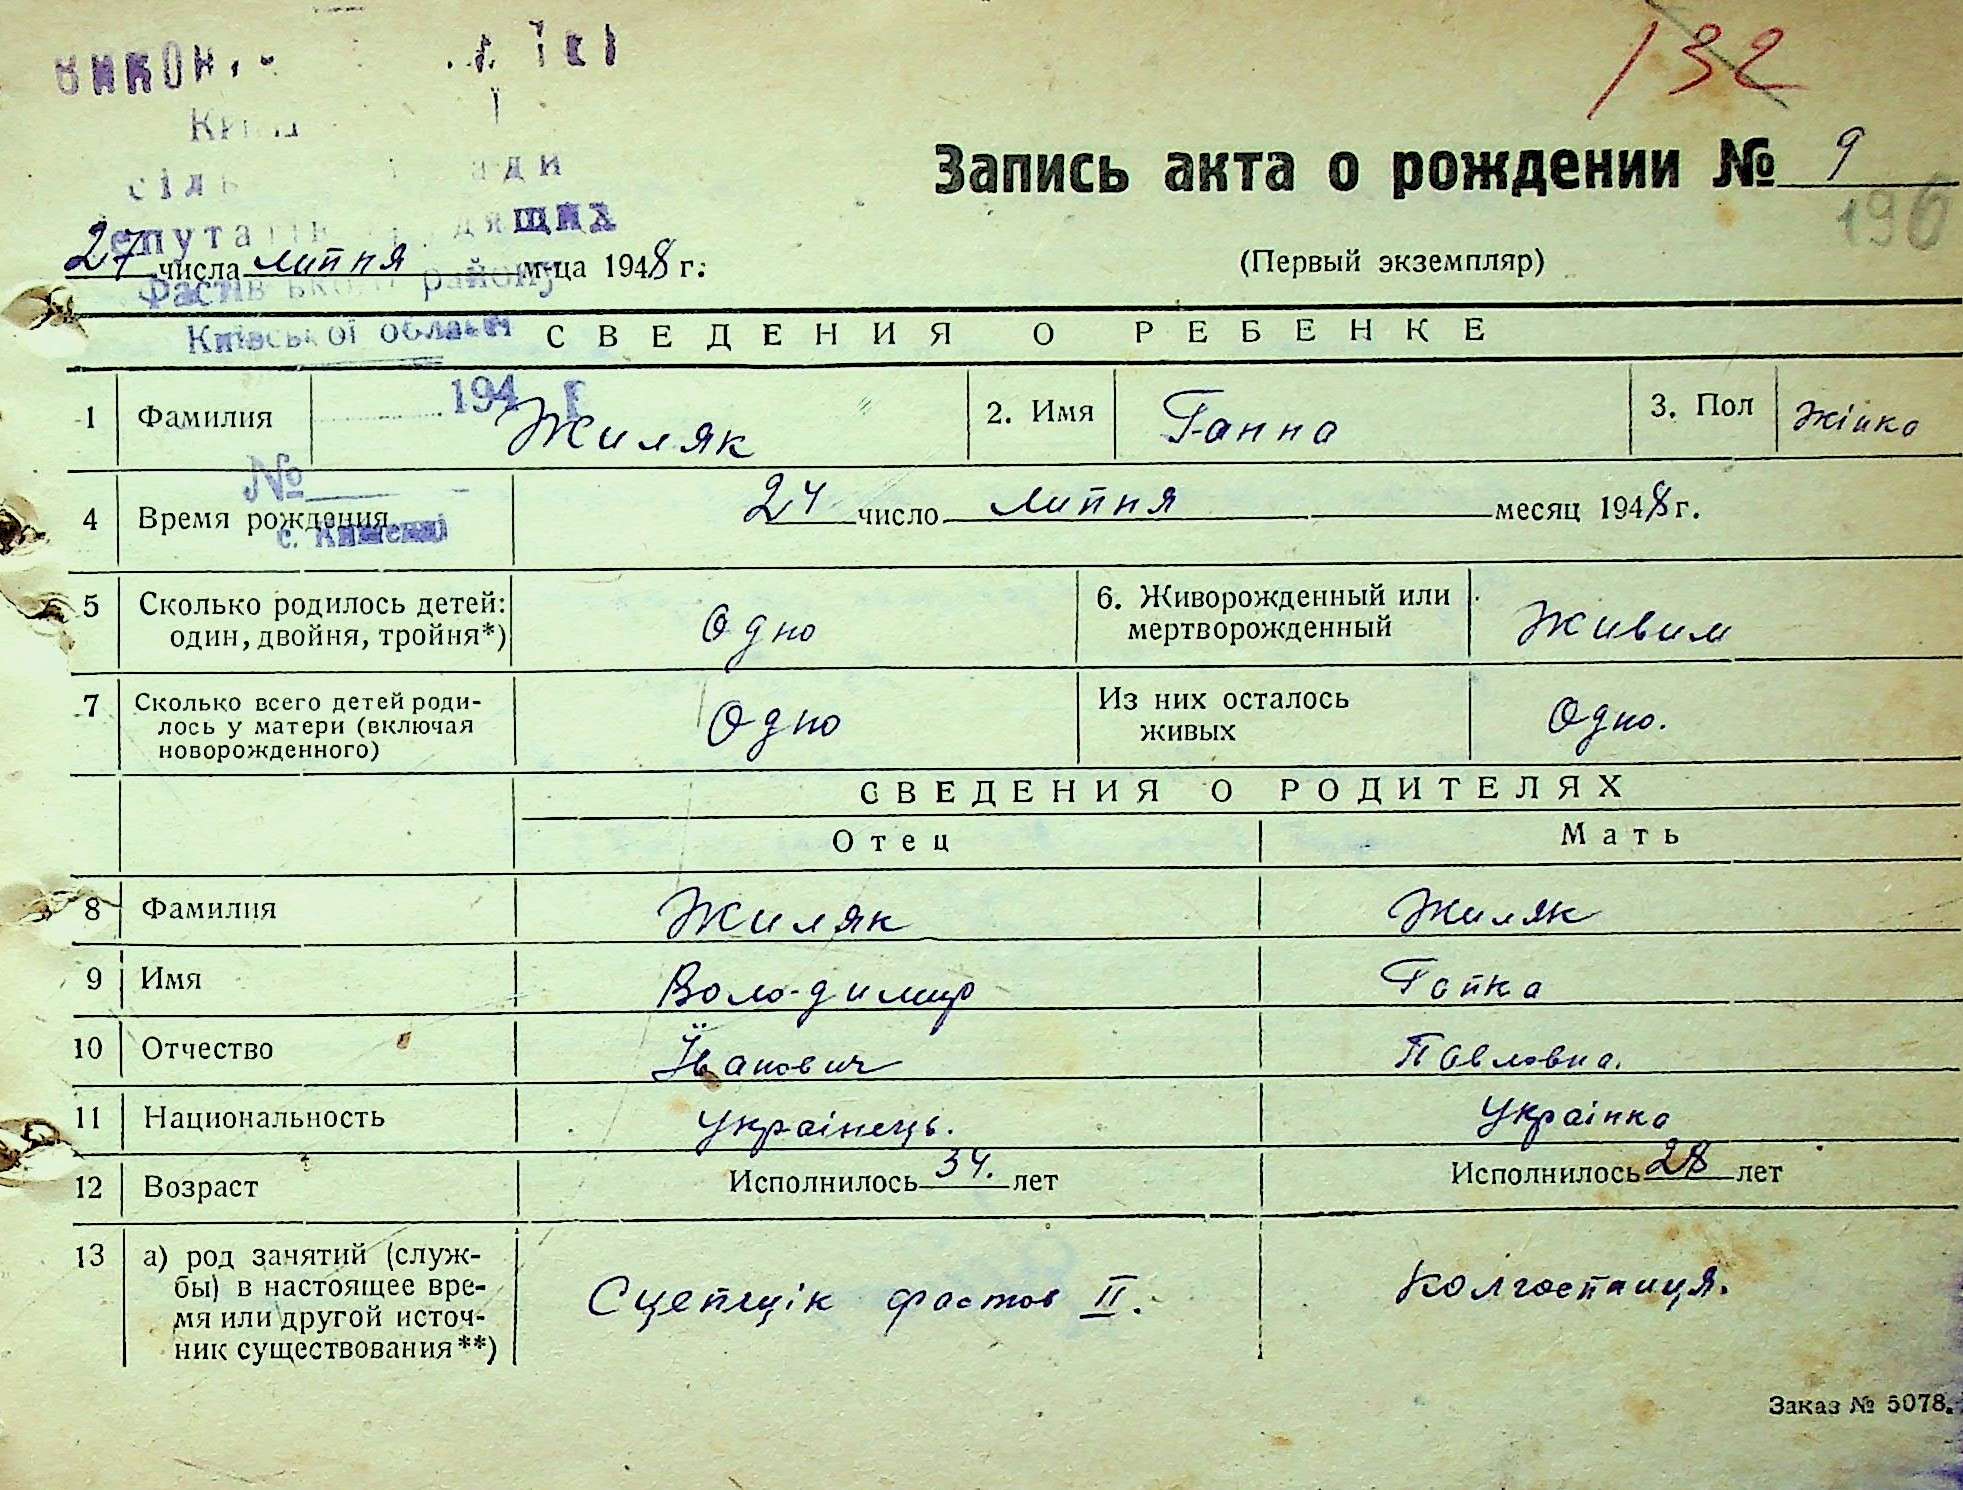 132
Запись акта о рождении № 9
196
27 числа липня м-ца 1948 г.
(Первый экземпляр)
району
Київської області
194 г
№
с.
СВЕДЕНИЯ О РЕБЕНКЕ
1 Фамилия Жиляк 2. Имя Ганна 3. Пол Жінка
4 Время рождения 24 число липня месяц 1948 г.
5 Сколько родилось детей: один, двойня, тройня*) Одно 6. Живорожденный или мертворожденный Живим
7 Сколько всего детей роди-
лось у матери (включая
новорожденного) Одно Из них осталось живых Одно.
СВЕДЕНИЯ О РОДИТЕЛЯХ
Отец Мать
8 Фамилия Жиляк Жиляк
9 Имя Володимир Гапка
10 Отчество Іванович Павловна.
11 Национальность Українець. Українка
12 Возраст Исполнилось 34. лет Исполнилось 28 лет
13 а) род занятий (служ-
бы) в настоящее вре-
мя или другой источ-
ник существования**) Сцепщік фастов II. Колгоспниця.
Заказ № 5078.